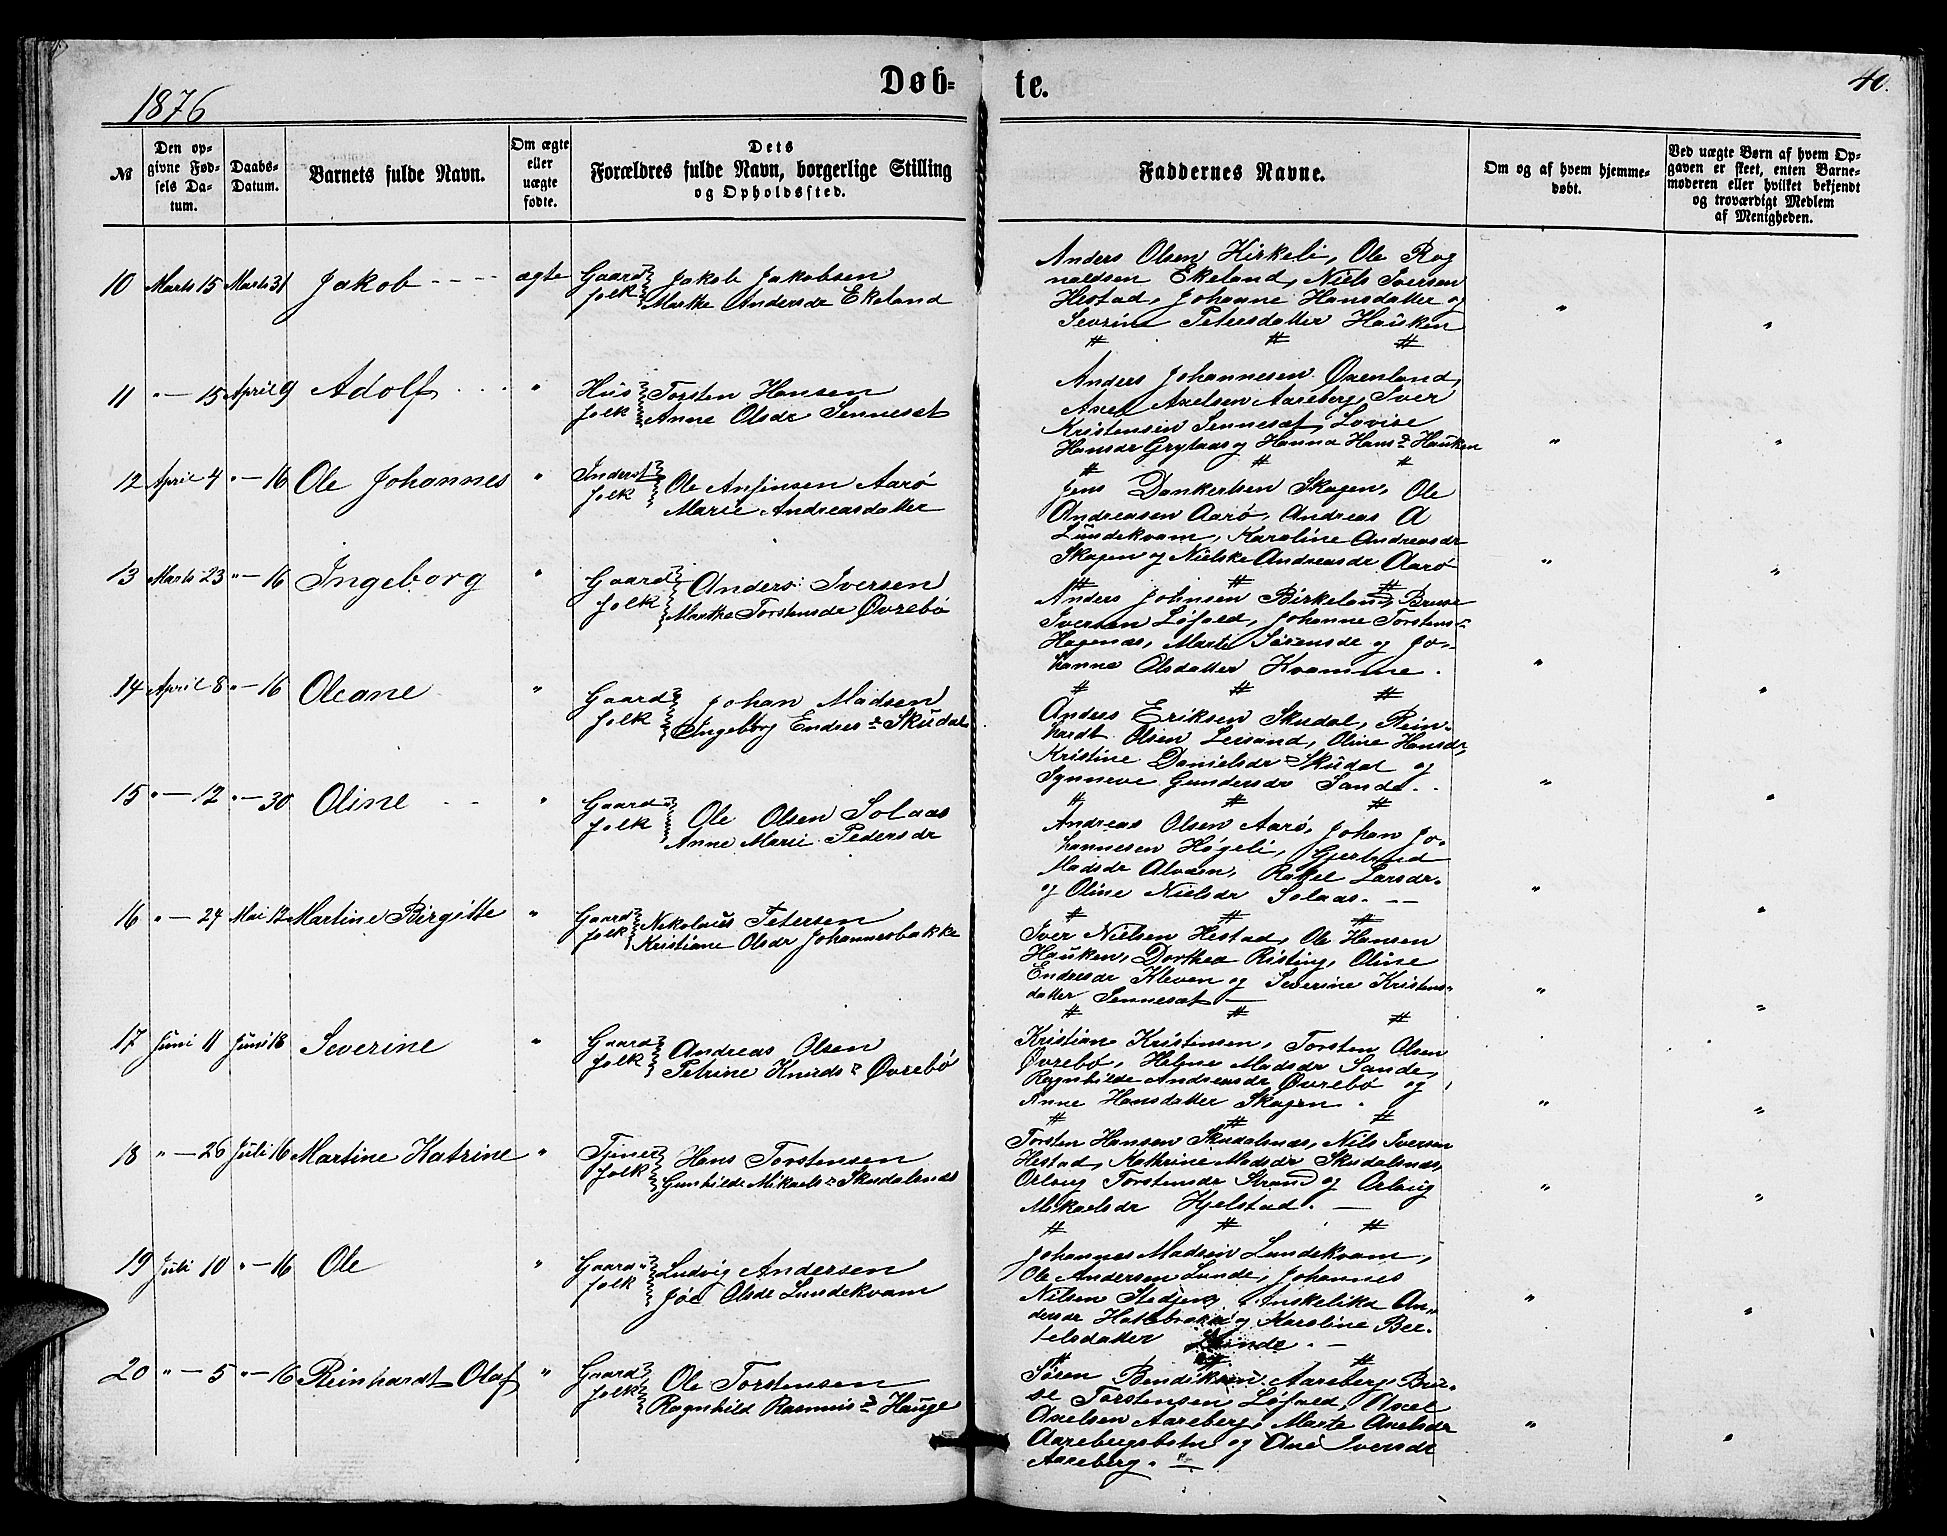 Døb- te.
40.
1876
№
Den opgivne Fødsels Datum.
Daabs-Datum.
Barnets fulde Navn.
Om ægte eller uægte fødte.
Dets
Forældres fulde Navn, borgerlige Stilling
og Opholdssted.
Faddernes Navne.
Om og af hvem hjemmedøbt.
Ved uægte Børn af hvem Opgaven er skeet, enten Barnemoderen eller hvilket bekjendt og troværdigt Medlem af Menigheden.
10 Marts 15 Marts 31 Jakob ægte Gaard folk Jakob Jakobsen
Marthe Andersdr Ekeland
Anders Olsen Kirkeli, Ole Rog
naldsen Ekeland, Niels Iversen
Hestad, Johanne Hansdatter og
Severine Petersdatter Hauken
11 " — 15 April 9 Adolf " Hus folk Torsten Hansen
Anne Olsdr Sennesæt
Anders Johannesen Oxenland,
Axel Axelsen Aareberg, Iver
Kristensen Sennesæt, Lovise
Hansdr Grytaas og Hanna Hansdr Hauken
12 April 4 " — 16 Ole Johannes " Inderst folk Ole Anfinsen Aarø
Marie Andreasdatter
Jens Dankertsen Skagen, Ole
Andreasen Aarø, Andreas A
Lundekvam, Karoline Andreasdr
Skagen og Nielske Andreasdr Aarø
13 Marts 23 " — 16 Ingeborg " Gaard folk Anders Iversen
Marthe Torstensdr Øvrebø
Anders Johnsen Birkeland, Bruse
Iversen Løfald, Johanne Torstensdr
Hagenes, Marte Sørensdr og Jo-
hanne Olsdatter Kvamme.
14 April 8 " — 16 Oleane " Gaard folk Johan Madsen
Ingeborg Endresdr Skudal
Anders Eriksen Skudal, Rein-
hardt Olsen Leisand, Oline Hansdr,
Kristine Danielsdr Skudal og
Synneve Gundersdr Sande.
15 " — 12 " — 30 Oline " Gaard folk Ole Olsen Solaas
Anne Marie Pedersdr
Andreas Olsen Aarø, Johan Jo-
hannesen Høgeli, Gjertrud
Madsdr Alvæen, Rakel Larsdr
og Oline Nielsdr Solaas.
16 " — 24 Mai 12 Martine Birgitte " Gaard folk Nikolaus Petersen
Kristiane Olsdr Johannesbakke
Iver Nielsen Hestad, Ole Hansen
Hauken, Dorthea Risting, Oline
Endresdr Kleven og Severine Kristens-
datter Sennesæt —
17 Juni 11 Juni 18 Severine " Gaard folk Andreas Olsen
Petrine Knudsdr Øvrebø
Kristian Kristensen, Torsten Olsen
Øvrebø, Helene Madsdr Sande,
Ragnhilde Andreasdr Øvrebø og
Anne Hansdatter Skagen.
18 " — 26 Juli 16 Martine Katrine " Tjener folk Hans Torstensen
Gunhilde Mikaelsdr Skudalsnes
Torsten Hansen Skudalsnes, Nils Iversen
Hestad, Kathrine Madsdr Skudalsnes,
Orlaug Torstensdr Strand og Orlaug
Mikaelsdr Hjelstad. —
19 Juli 10 " — 16 Ole " Gaard folk Ludvig Andersen
Olsdr Lundekvam
Johannes Madsen Lundekvam,
Ole Andersen Lunde, Johannes
Nilsen Stedjen, An-
dersdr og Karoline Ber-
telsdatter Lunde. —
20 " — 5 " — 16 Reinhardt Olaf " Gaard folk Ole Torstensen
Ragnhild Rasmusdr Hauge
Søren Bendiksen Aareberg, Bru-
se Torstensen Løfald, Axel
Axelsen Aareberg, Marte Axelsdr
Aarebergsbotn og Ane Iversdr
Aareberg.